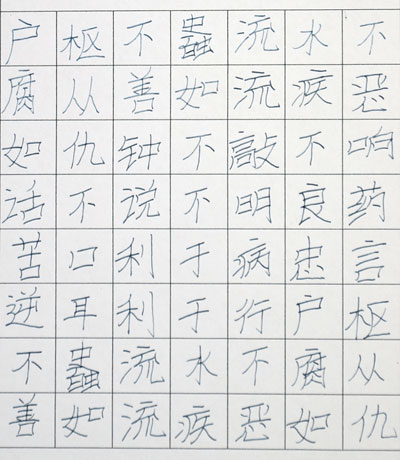 户枢不蠹流水不
腐从善如流疾恶
如仇钟不敲不响
话不说不明良药
苦口利于病忠言
逆耳利于行户枢
不蠹流水不腐从
善如流疾恶如仇